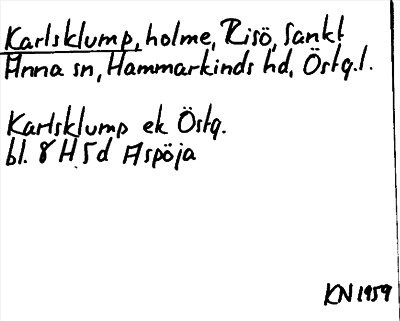 Karlsklump, holme, Risö, Sankt
Anna sn, Hammarkinds hd, Östg.l.
Karlsklump ek Östg.
bl. 8 H 5d Aspöja
KN 1959